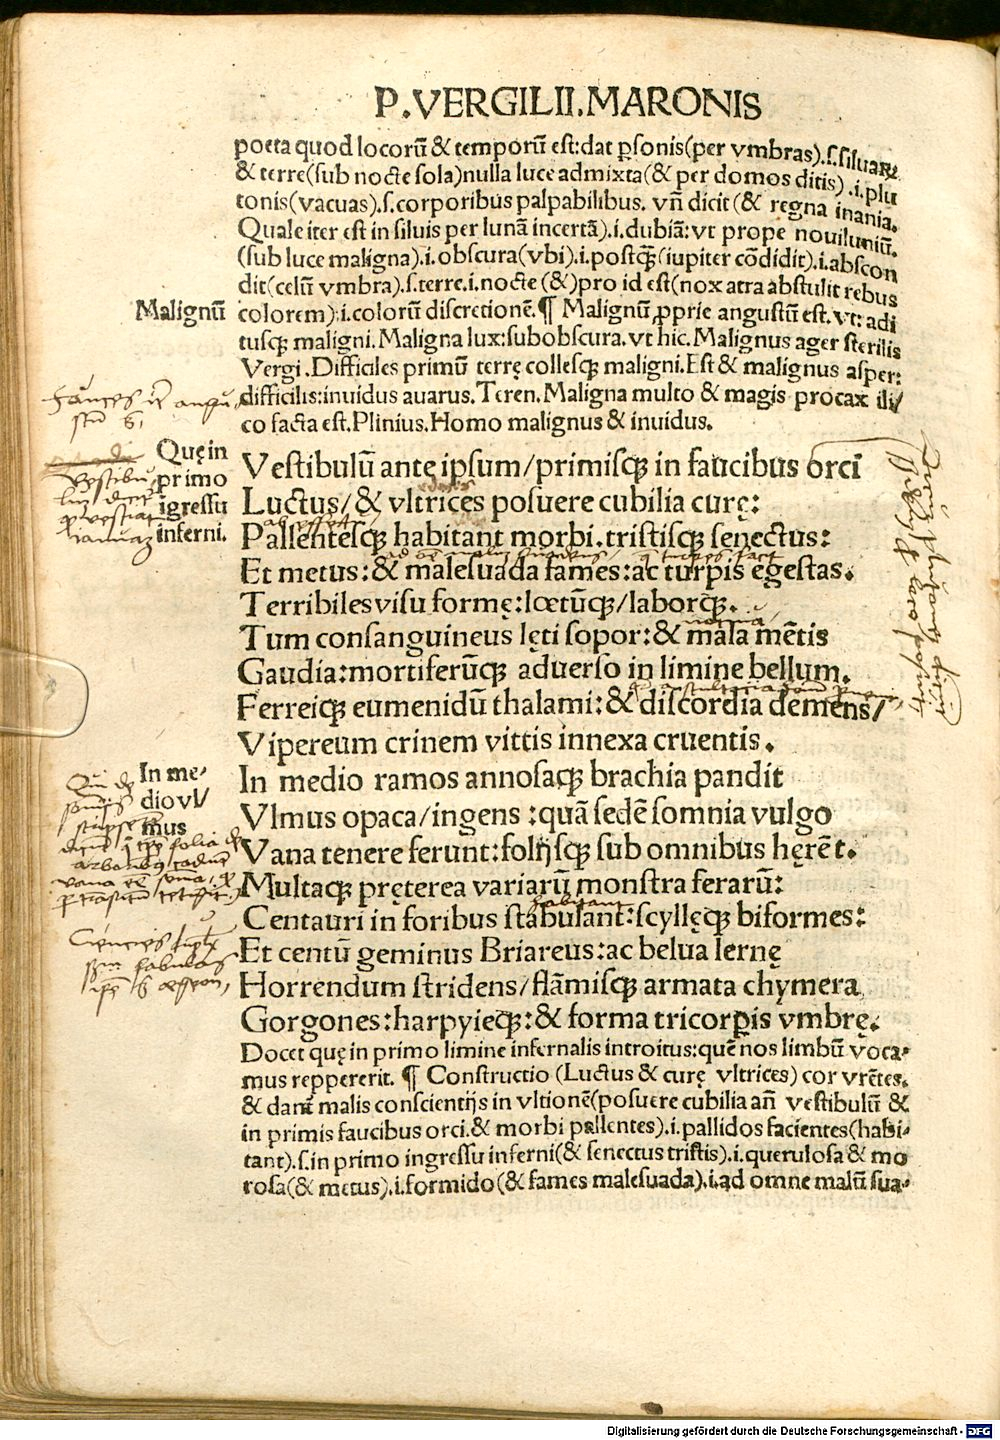 P.VERGILII.MARONIS
poeta quod locorũ & temporũ est:dat ꝑsonis(per vmbras).ſ.siluarꝝ
& terre(sub nocte sola)nulla luce admixta(& per domos ditis) .i.plu
tonis(vacuas).ſ.corporibus palpabilibus. vñ dicit (& regna inania.
Quale iter est in siluis per lunã incertã).i.dubiã:vt prope nouiluniũ.
(sub luce maligna).i.obscura(vbi).i.postꝙ̃(iupiter cõdidit).i.abscon
dit(celũ vmbra).ſ.terre.i.nocte (&)pro id est(nox atra abstulit rebus
Malignũ
colorem).i.colorũ discretionẽ.¶ Malignũ ꝓprie angustũ est.vt:adi
tusqꝫ maligni.Maligna lux:subobscura.vt hic.Malignus ager sterilis
Vergi.Difficiles primũ terrę collesqꝫ maligni.Est & malignus asper:
difficilis:inuidus auarus.Teren.Maligna multo & magis procax ili/
co facta est.Plinius.Homo malignus & inuidus.
Quę in
primo
igressu
inferni.
Vestibulũ ante ipsum/primisqꝫ in faucibus orci
Luctus/& vltrices posuere cubilia curę:
Pallentesqꝫ habitant morbi.tristisqꝫ senectus:
Et metus:& malesuada fames:ac turpis egestas.
Terribiles visu formę:lœtũqꝫ/laborqꝫ.
Tum consanguineus lęti sopor:& mala mẽtis
Gaudia:mortiferũqꝫ aduerso in limine bellum.
Ferreiqꝫ eumenidũ thalami:& discordia demens/
Vipereum crinem vittis innexa cruentis.
In me-
dio vl/
mus
In medio ramos annosaqꝫ brachia pandit
Vlmus opaca/ingens :quã sedẽ somnia vulgo
Vana tenere ferunt:folijsqꝫ sub omnibus hęrẽt.
Multaqꝫ pręterea variarũ monstra ferarũ:
habitant
Centauri in foribus stabulant:scyllęqꝫ biformes:
Et centũ geminus Briareus:ac belua lernę
Horrendum stridens/flãmisqꝫ armata chymera
Gorgones:harpyieqꝫ:& forma tricorꝑis vmbrę.
Docet quę in primo limine infernalis introitus:quẽ nos limbũ voca-
mus reppererit. ¶ Constructio (Luctus & curę vltrices) cor vrẽtes.
& dant malis conscientijs in vltionẽ(posuere cubilia añ vestibulũ &
in primis faucibus orci.& morbi pallentes).i.pallidos facientes(habi-
tant).ſ.in primo ingressu inferni(& senectus tristis).i.querulosa & mo
rosa(& metus).i.formido(& fames malesuada).i.ad omne malũ sua-
Digitalisierung gefördert durch die Deutsche Forschungsgemeinschaft - DFG